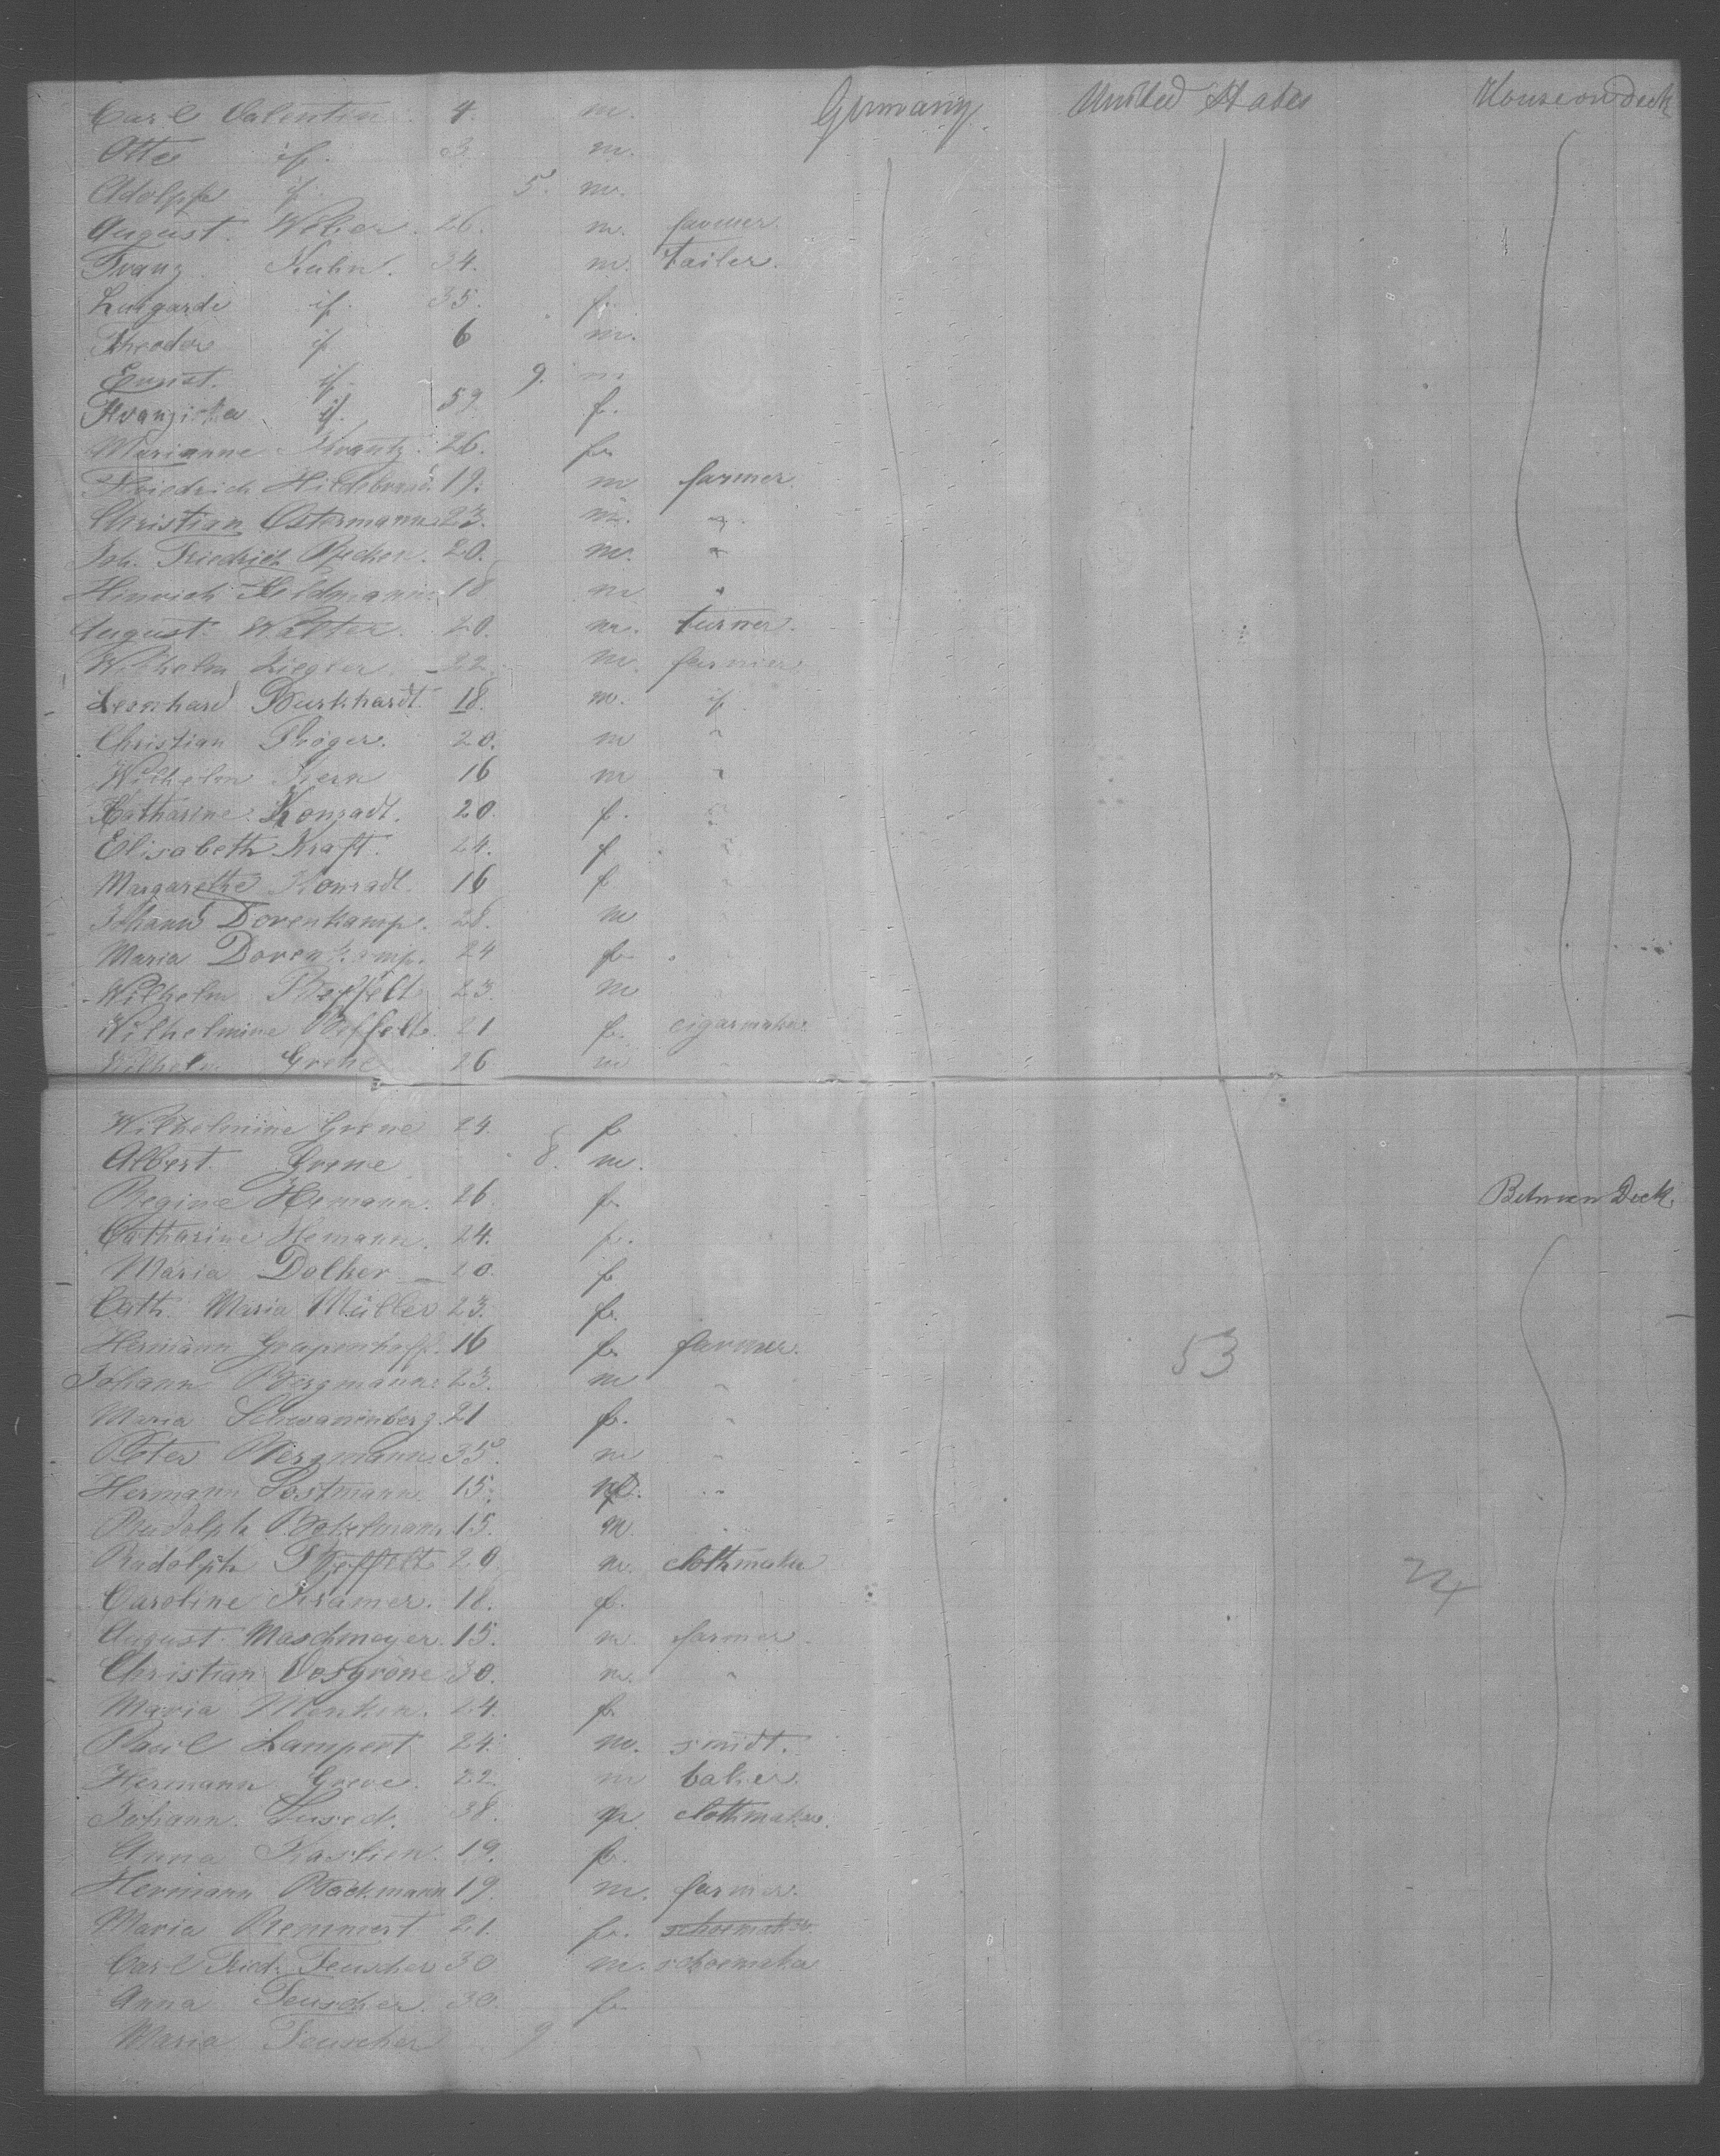 Carl Valentin. 4. m. Germany United States House on Deck
Otto if. 3. m.
Adolph if. 5. m.
August. Weber. 26. m. farmer.
Franz. Kuhn. 34. m. tailer.
Luitgarde if. 35. f.
Theodor if 6 m.
Ernst. if. 9. m
Franziska if. 59. f.
Marianne Krantz. 26. f.
Friedrich Hildebrand. 19. m farmer.
Christian Ostermann. 23. m. "
Joh. Friedrich 20. m. "
Hinrich Feldmann. 18 m "
August. Walter. 20. m. turner.
Wilhelm Ziegler. 22. m. farmer
Leonhard Burkhardt. 18. m. if.
Christian 20. m "
Wilhelm Kern 16 m "
Catharine Konradt. 20. f. "
Elisabeth Kraft. 24. f "
Margarethe Konradt. 16 f "
Johann Dovenkamp. 28. m
Maria Dovenkamp. 24 f. "
Wilhelm 23. m
Wilhelmine 21 f. cigarmaker
Wilhelm Grene 26 m
Wilhelmine Grene 24. f
Albert. Grene 8. m.
Regine Hemann. 26. f. Between Deck.
Catharine Hemann. 24. f.
Maria Dolker 20. f
Cath. Maria Müller 23. f.
Hermann Grapenhoff. 16 f. farmer.
Johann Bergmann. 23. m " 53
Maria Schwanenberg. 21 f. "
Peter Bergmann. 35. m "
Hermann Postmann. 15. m. "
Rudolph 15. m. "
Rudolph 20 m. clothmaker
Caroline Kramer. 18. f.
August Maschmeyer. 15. m. farmer.
Christian Vosgröne 30. m. "
Maria Menken. 24. f.
Paul Lampert 24. m. smidt.
Hermann Greve. 22. m baker.
Johann 38. m. clothmaker.
Anna Kastien. 19. f.
Hermann Böckmann 19. m. farmer.
Maria Remmert 21. f. schoemaker
Carl Fried. Teuscher 30 m. schoemaker
Anna Teuscher. 30. f.
Maria Teuscher 9.